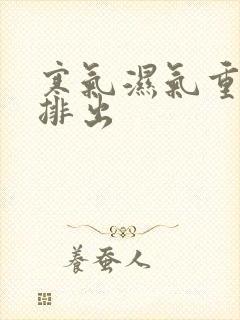 寒氣濕氣重
排出
養蚕人